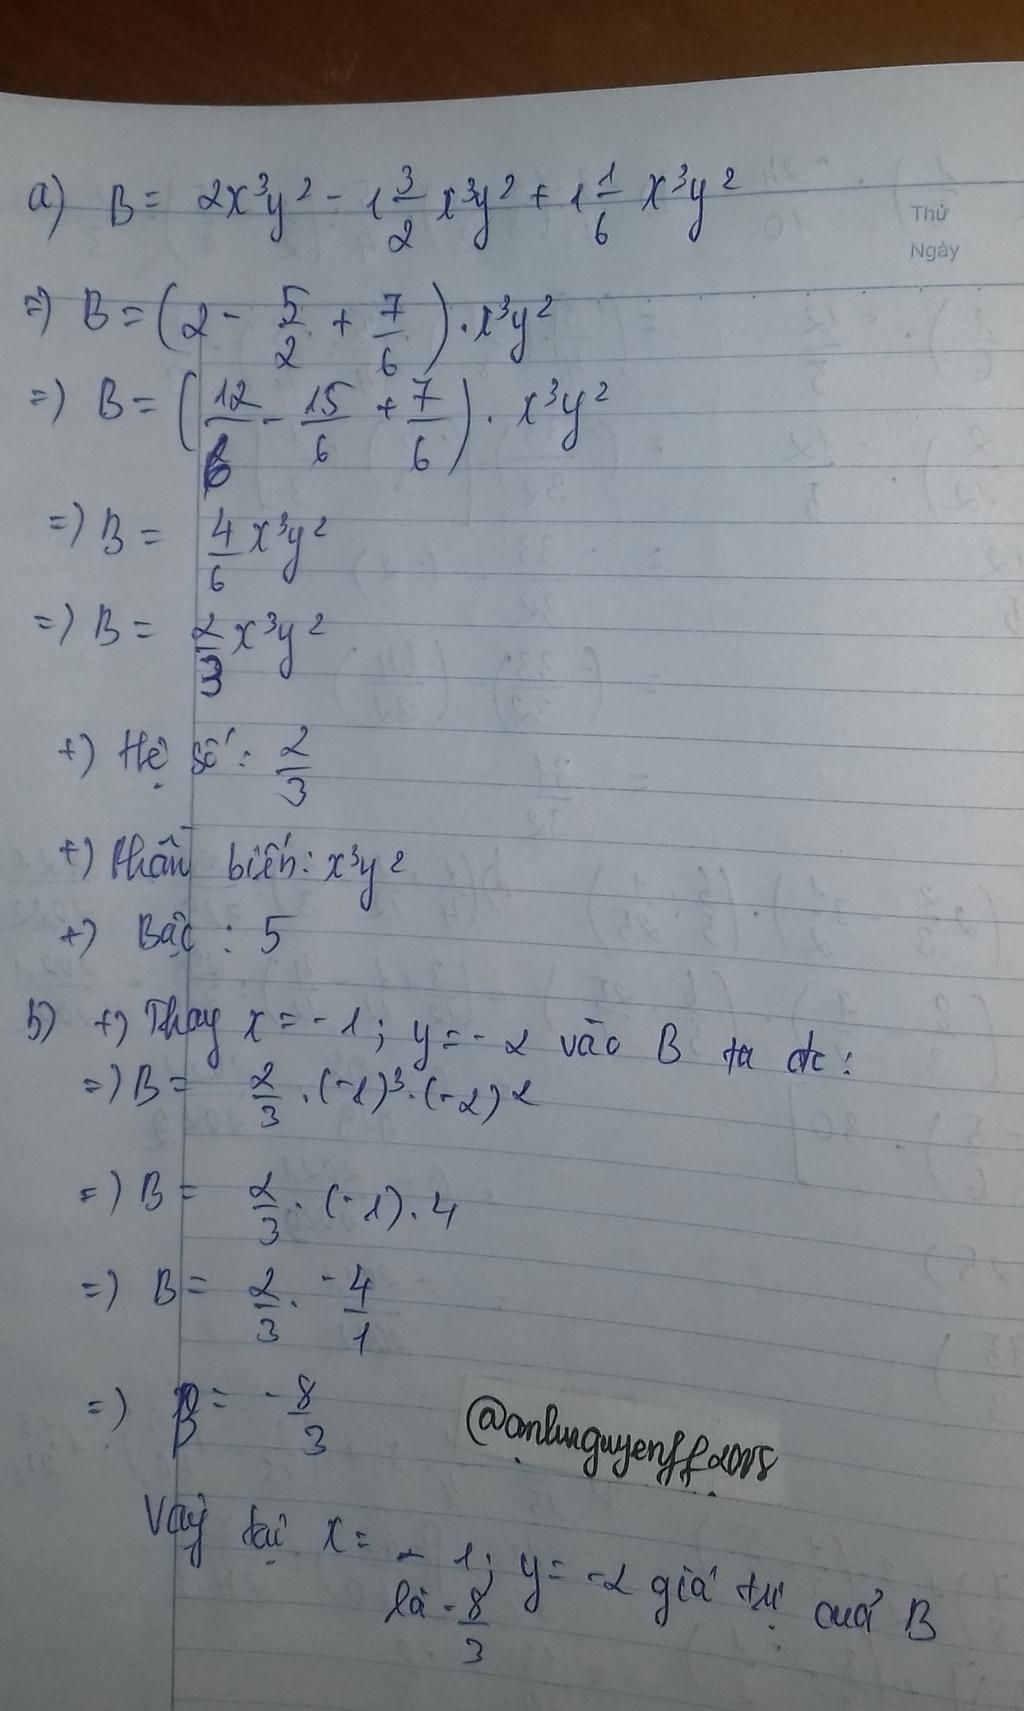 a) B = 2x³y² - 1 3/2 x³y² + 1 1/6 x³y²
Thứ
Ngày
=) B = (2 - 5/2 + 7/6) . x³y²
=) B = (12/6 - 15/6 + 7/6) . x³y²
=) B = 4/6 x³y²
=) B = 2/3 x³y²
+) Hệ số : 2/3
+) Phần biến: x³y²
+) Bậc : 5
b) +) Thay x = -1 ; y = -2 vào B ta đc :
=) B = 2/3 . (-1)³ . (-2)²
=) B = 2/3 . (-1) . 4
=) B = 2/3 . -4/1
=) B = -8/3
Vậy tại x = -1; y = -2 giá trị của B
là -8/3